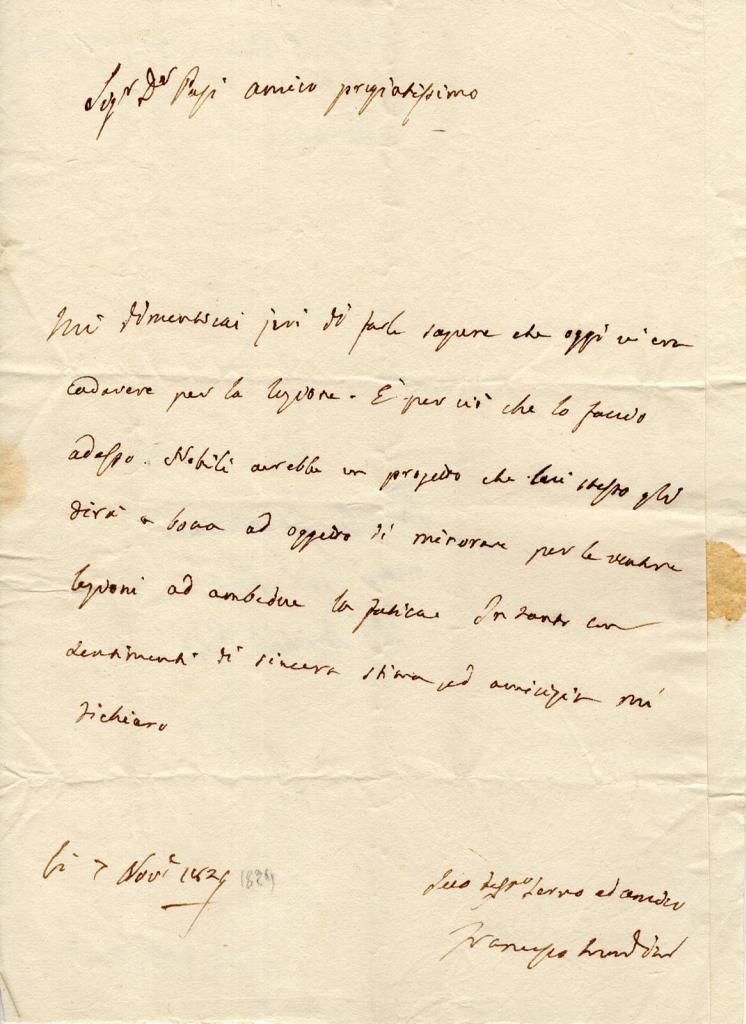 Sigr Dr Pasi amico pregiatissimo
Mi dimenticai jeri di farle sapere che oggi vi era
cadavere per la lezione. E per ciò che lo faccio
adesso. Nobili avrebbe un progetto che lui stesso gli
dirà a boca ad oggetto di minorare per le venture
lezioni ad ambedue la fatica. In tanto con
sentimenti di sincera stima ed amicizia mi
dichiaro
li 7 Nove 1829 (1829)
Suo servo ed amico
Francesco